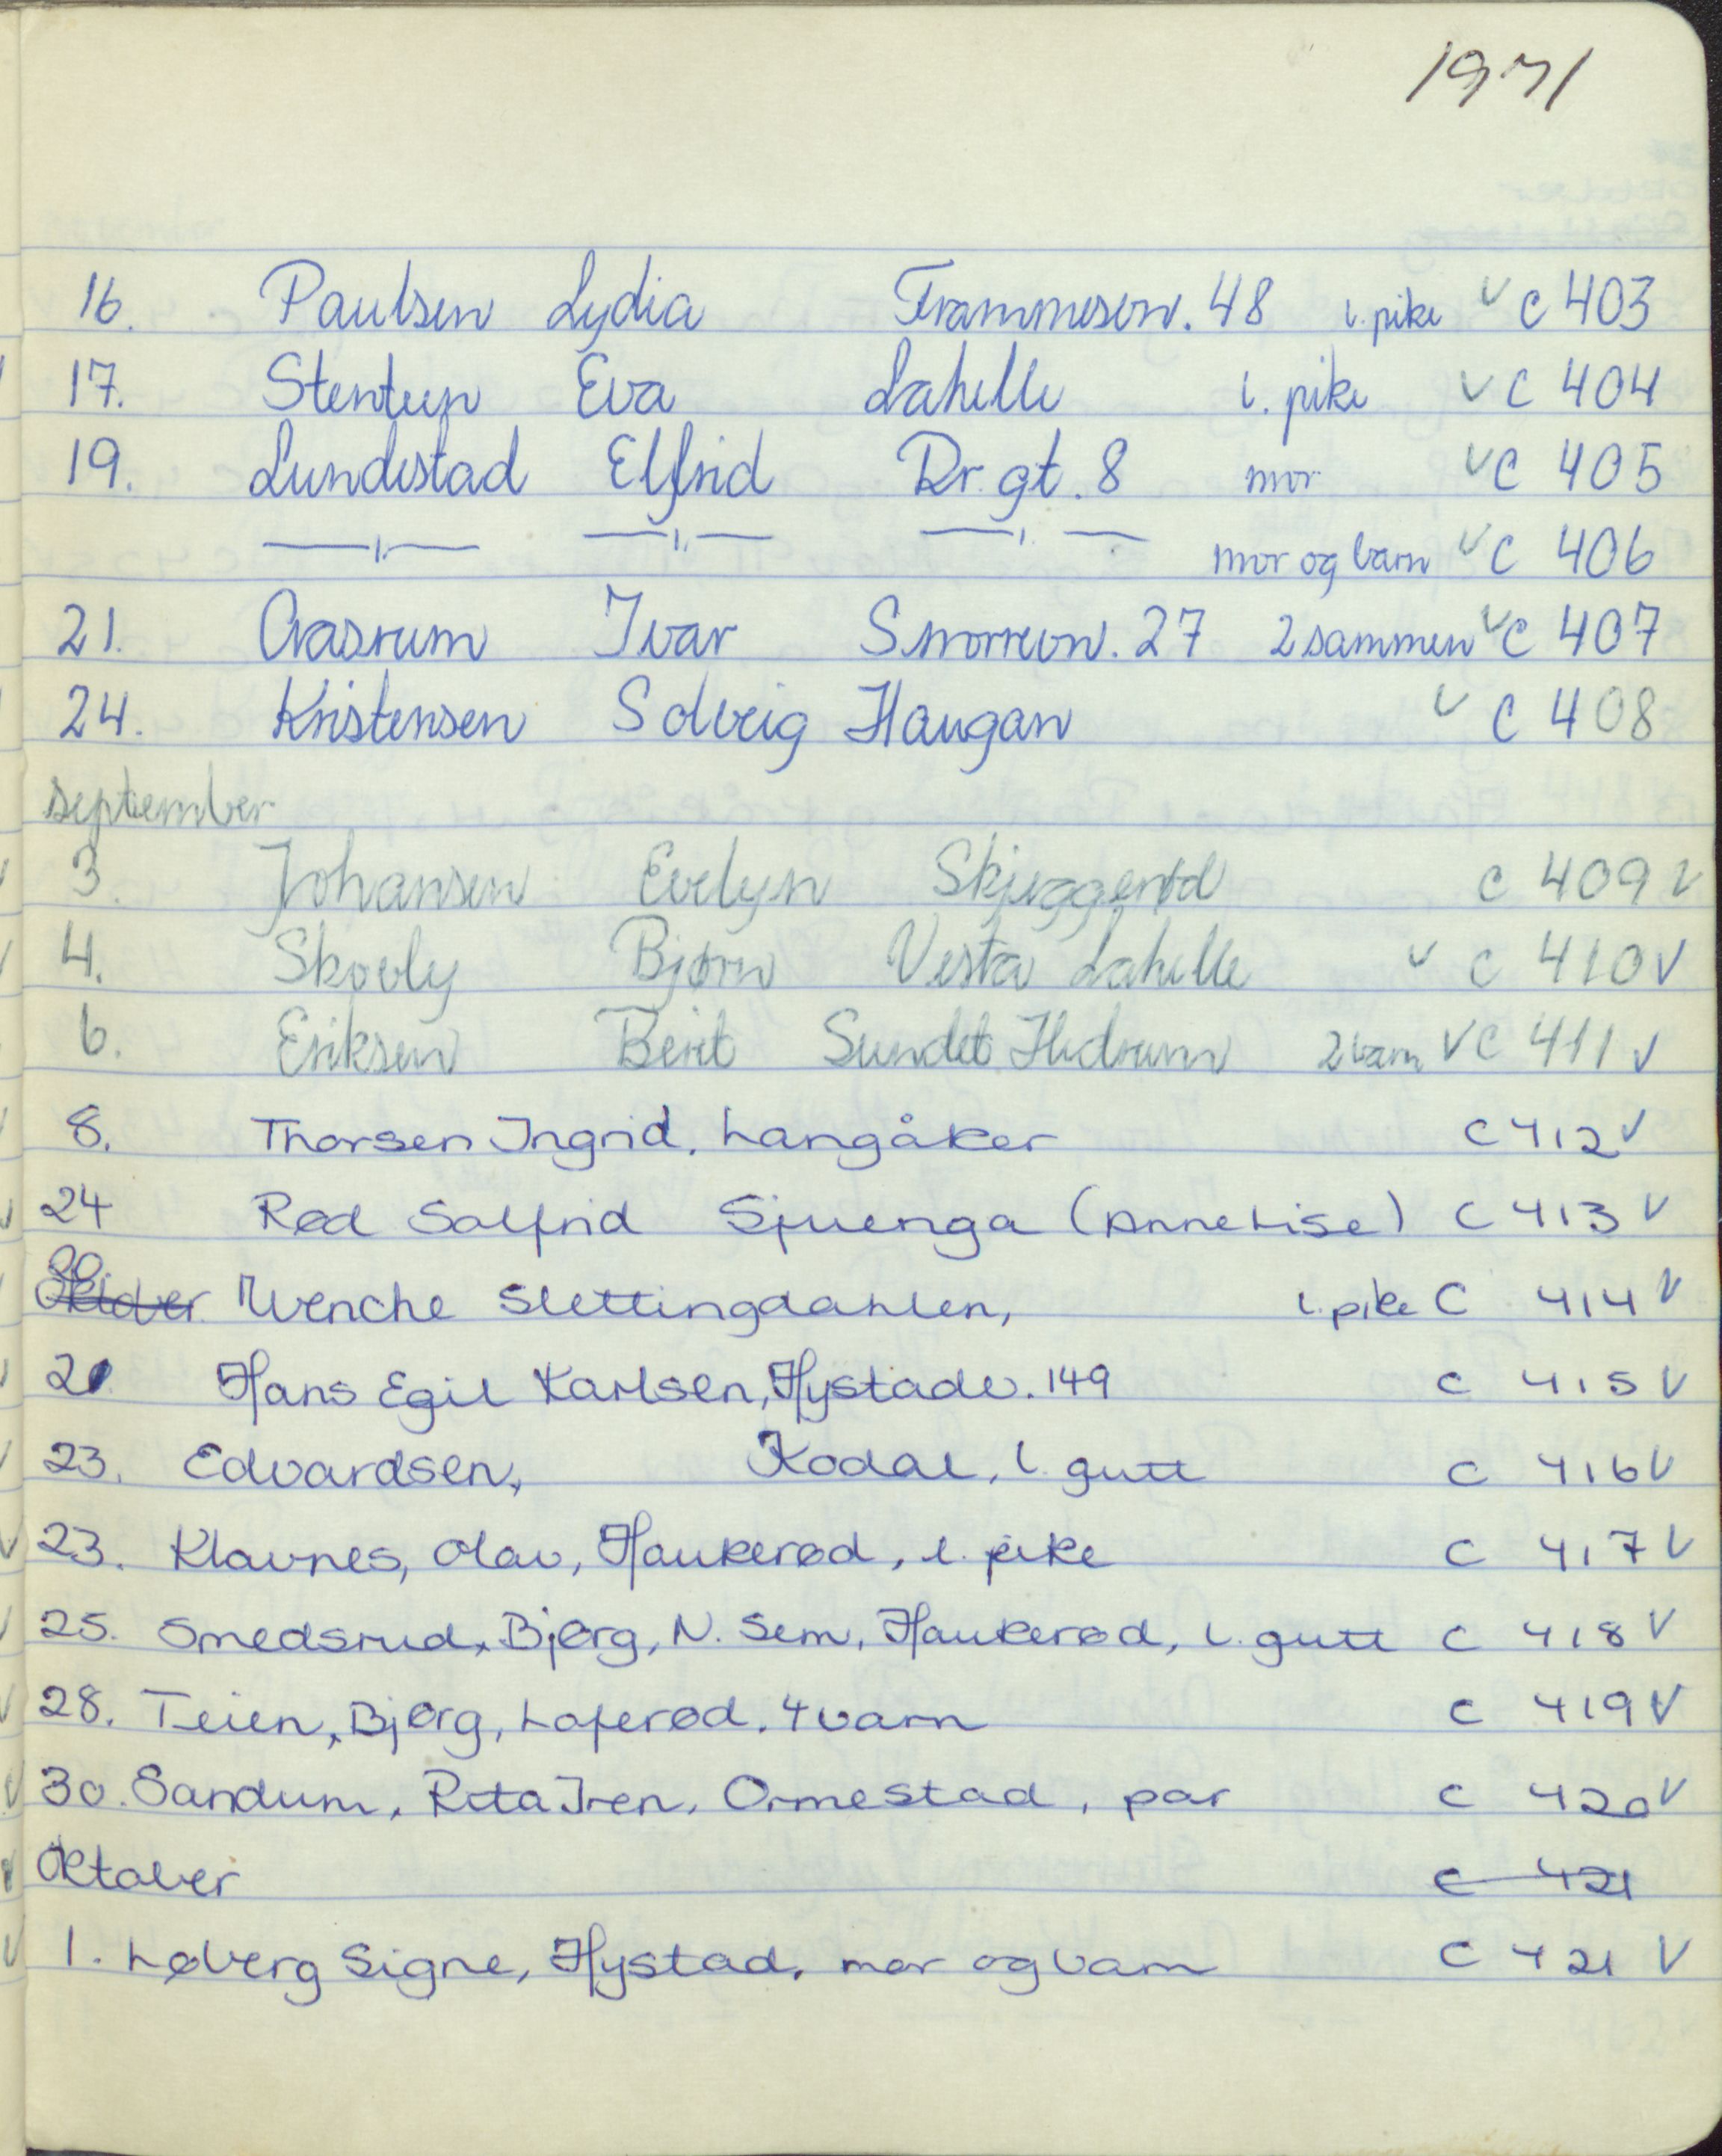 1971
16. Paulsen Lydia Frammesv. 48 l. pike V C 403
17. Stentun Eva Lahelle l. pike V C 404
19. Lundestad Elfrid Dr. gt. 8 mor V C 405
—"— —"— —"— mor og barn V C 406
21. Aasrum Ivar Snorresv. 27 2 sammen V C 407
24. Kristensen Solveig Haugan V C 408
september
3. Johansen Evelyn Skjeggerød C 409 V
4. Skovly Bjørn Vesta Lahelle V C 410 V
6. Eriksen Berit Sundet Hedrum 2 barn V C 411 V
8. Thorsen Ingrid, Langåker C 412 V
24 Rød Solfrid Sjuenga (Anne Lise) C 413 V
20
Oktober Wenche Slettingdahlen, l. pike C 414 V
21 Hans Egil Karlsen, Hystadv. 149 C 415 V
23. Edvardsen, Kodal, l. gutt C 416 V
23. Klavnes, Olav, Haukerød, l. pike C 417 V
25. Smedsrud, Bjørg, N. Sem, Haukerød, l. gutt C 418 V
28. Teien, Bjørg, Laferød. 4 barn C 419 V
30. Sandum, Rita Iren, Ormestad, par C 420 V
Oktober C 421
1. Løberg Signe, Hystad, mor og barn C 421 V